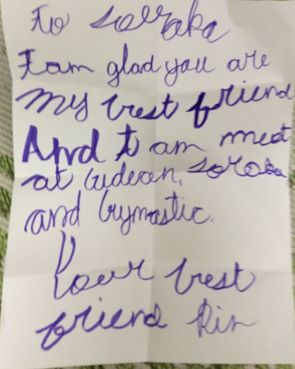 To Soraka
I am glad you are
My best friend
And I am meet
at Gudean, Soraka
and Gymnastic.
Your best
friend Rin